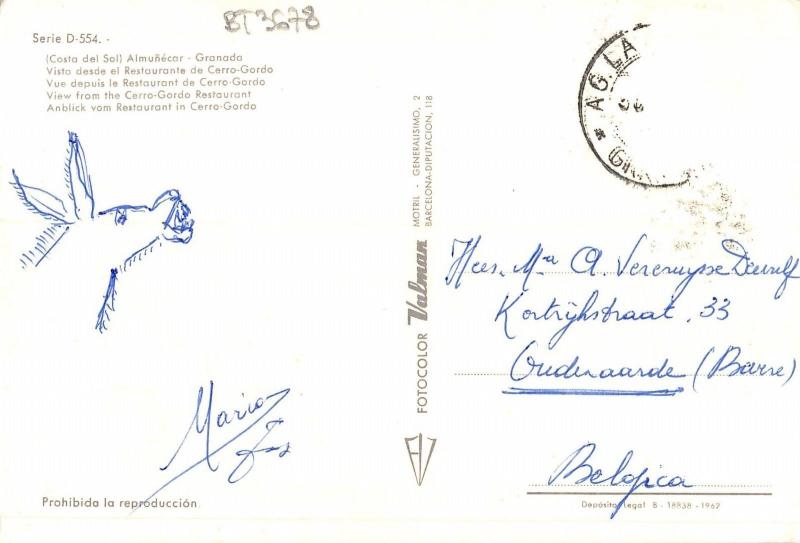 BT3678
Serie D-554. -
(Costa del Sol) Almuñécar - Granada
Vista desde el Restaurante de Cerro-Gordo
Vue depuis le Restaurant de Cerro-Gordo
View from the Cerro-Gordo Restaurant
Anblick vom Restaurant in Cerro-Gordo
Mario
Prohibida la reproducción
MOTRIL - GENERALISIMO, 2
BARCELONA-DIPUTACION, 118
FOTOCOLOR Valman
* AG. LA
A. Vereruysse
Kortrijkstraat. 33
Oudenaarde (Barre)
Belgica
Depósito Legal B - 18838 - 1962